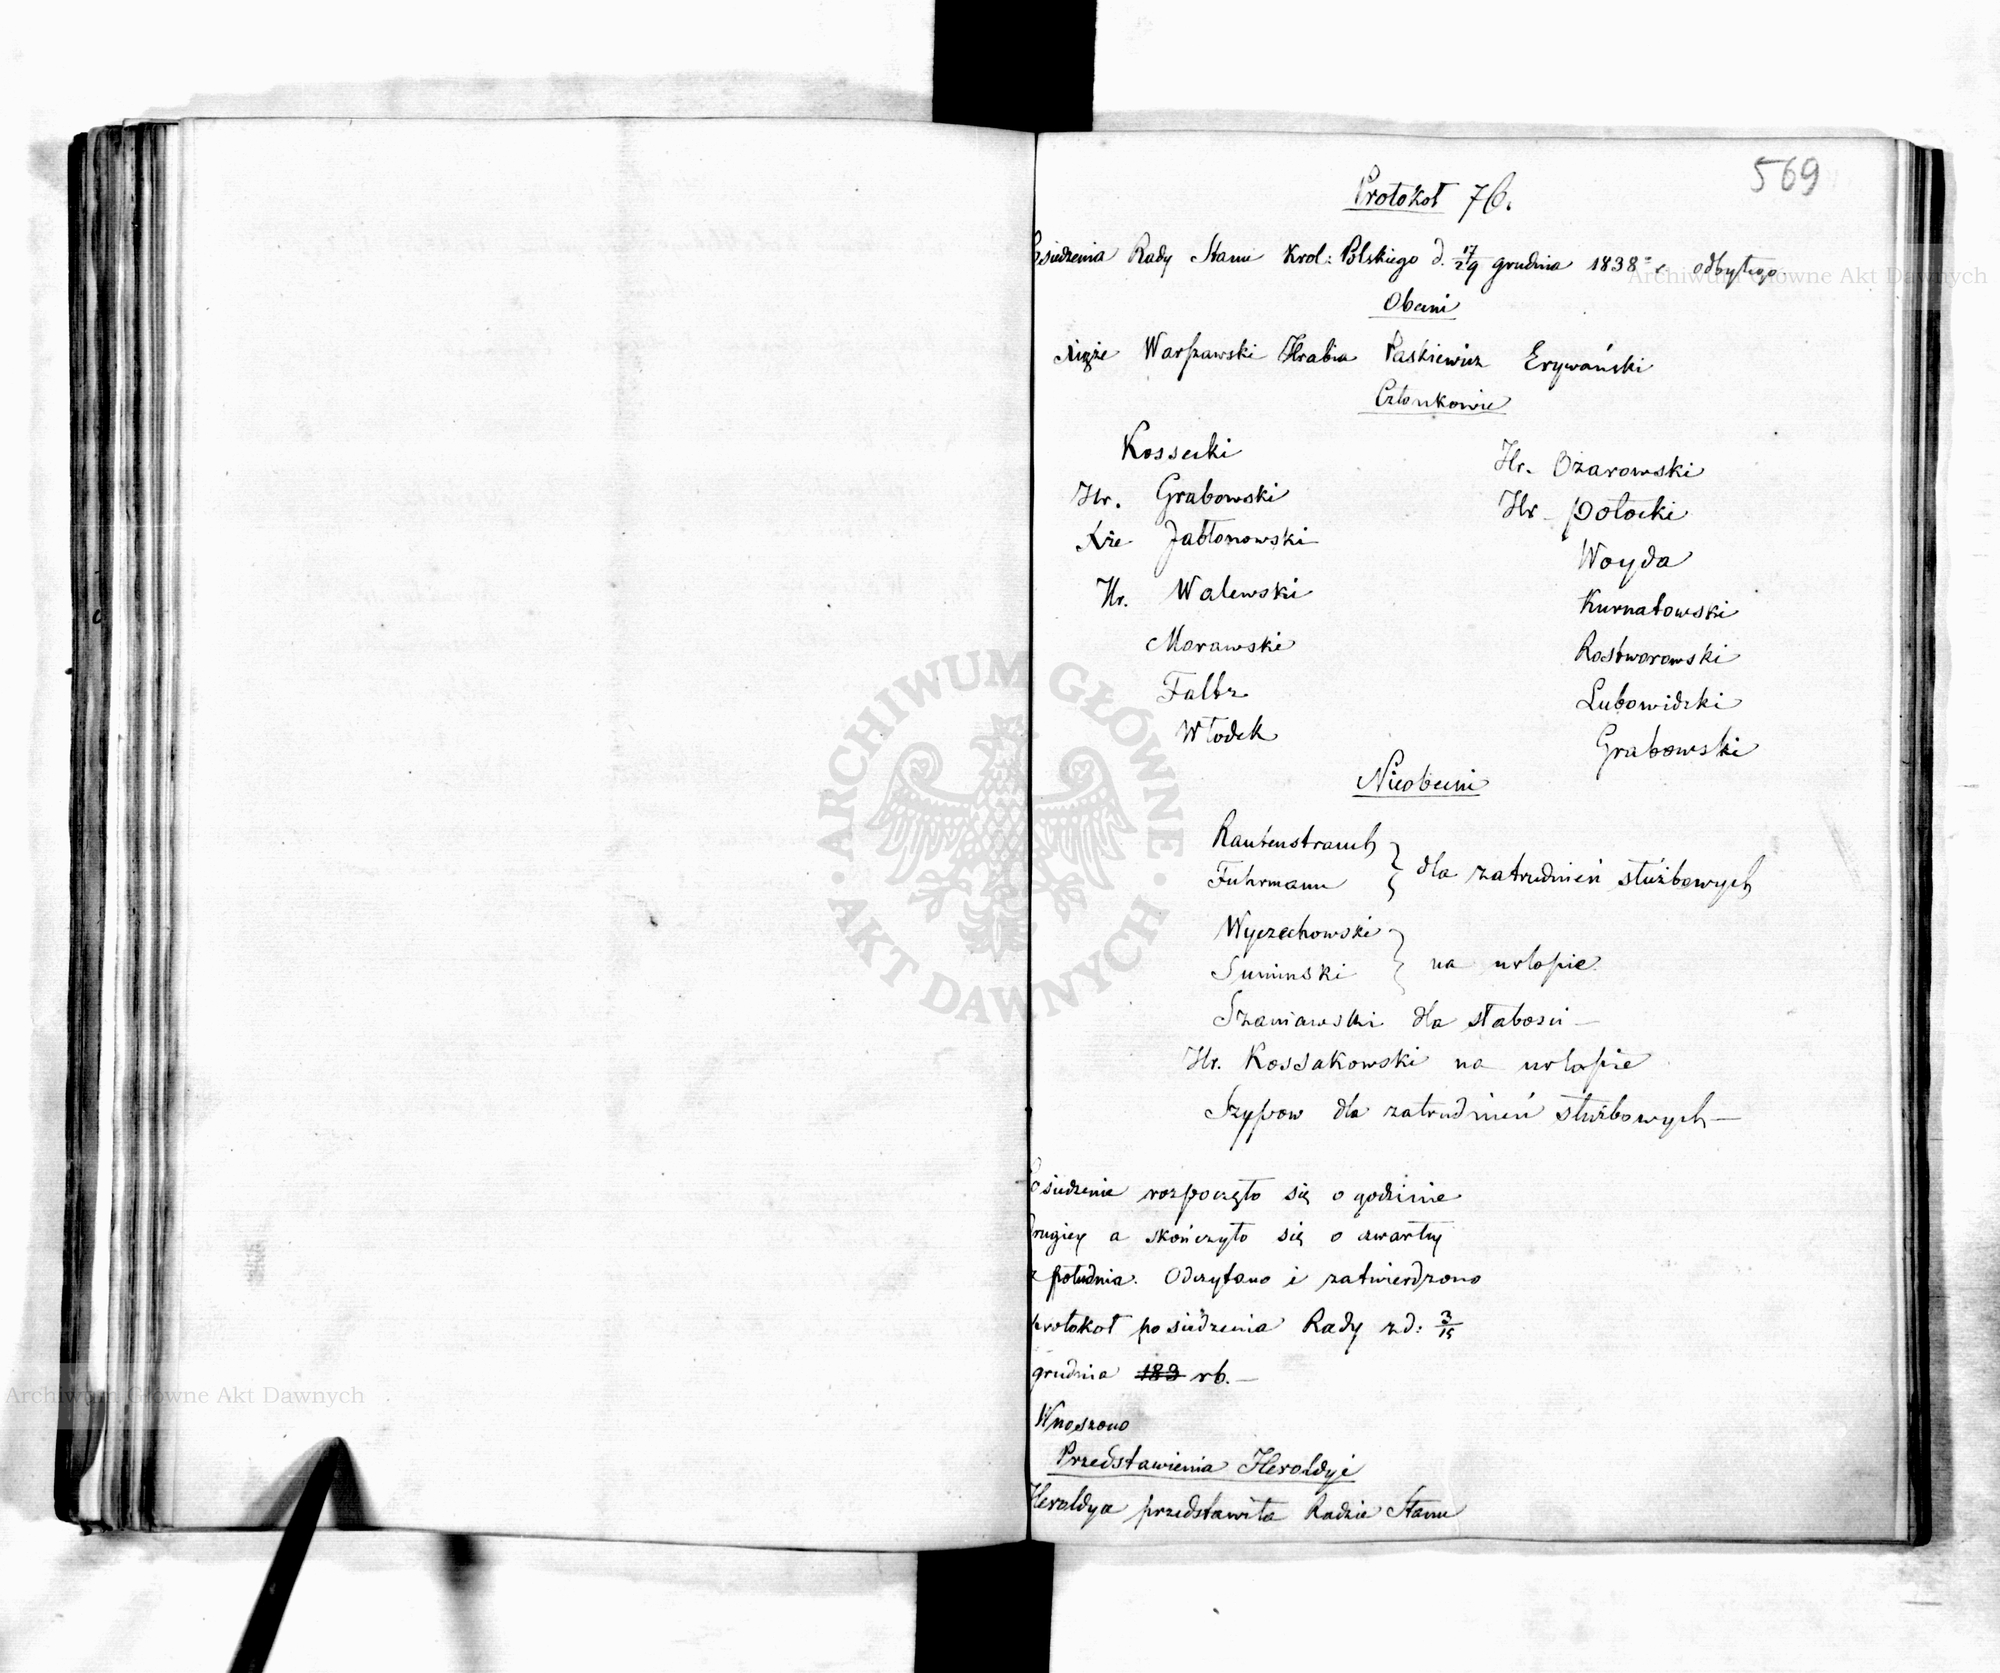 569
Protokół 76.
Posiedzenia Rady Stanu Król: Polskiego d. 17/29 grudnia 1838 r. odbytego
Obecni
Xiąże Warszawski Hrabia Paskiewicz Erywański
Członkowie
Kossecki
Hr. Ożarowski
Hr. Grabowski
Hr. Potocki
Xże Jabłonowski
Woyda
Hr. Walewski
Kurnatowski
Morawski
Rostworowski
Faltz
Lubowidzki
Włodek
Grabowski
Nieobecni
Rautenstrauch
Fuhrmann
dla zatrudnień służbowych
Wyczechowski
Suminski
na urlopie
Szaniawski dla słabości —
Hr. Kossakowski na urlopie
Szypow dla zatrudnień służbowych —
Posiedzenie rozpoczęło się o godzinie
drugiey a skończyło się o czwartey
z południa. Odczytano i zatwierdzono
protokół posiedzenia Rady z d: 3/15
grudnia 183 rb. —
Wnoszono
Przedstawienia Heroldyi
Heroldya przedstawiła Radzie Stanu
ARCHIWUM GŁÓWNE AKT DAWNYCH
Archiwum Główne Akt Dawnych
Archiwum Główne Akt Dawnych